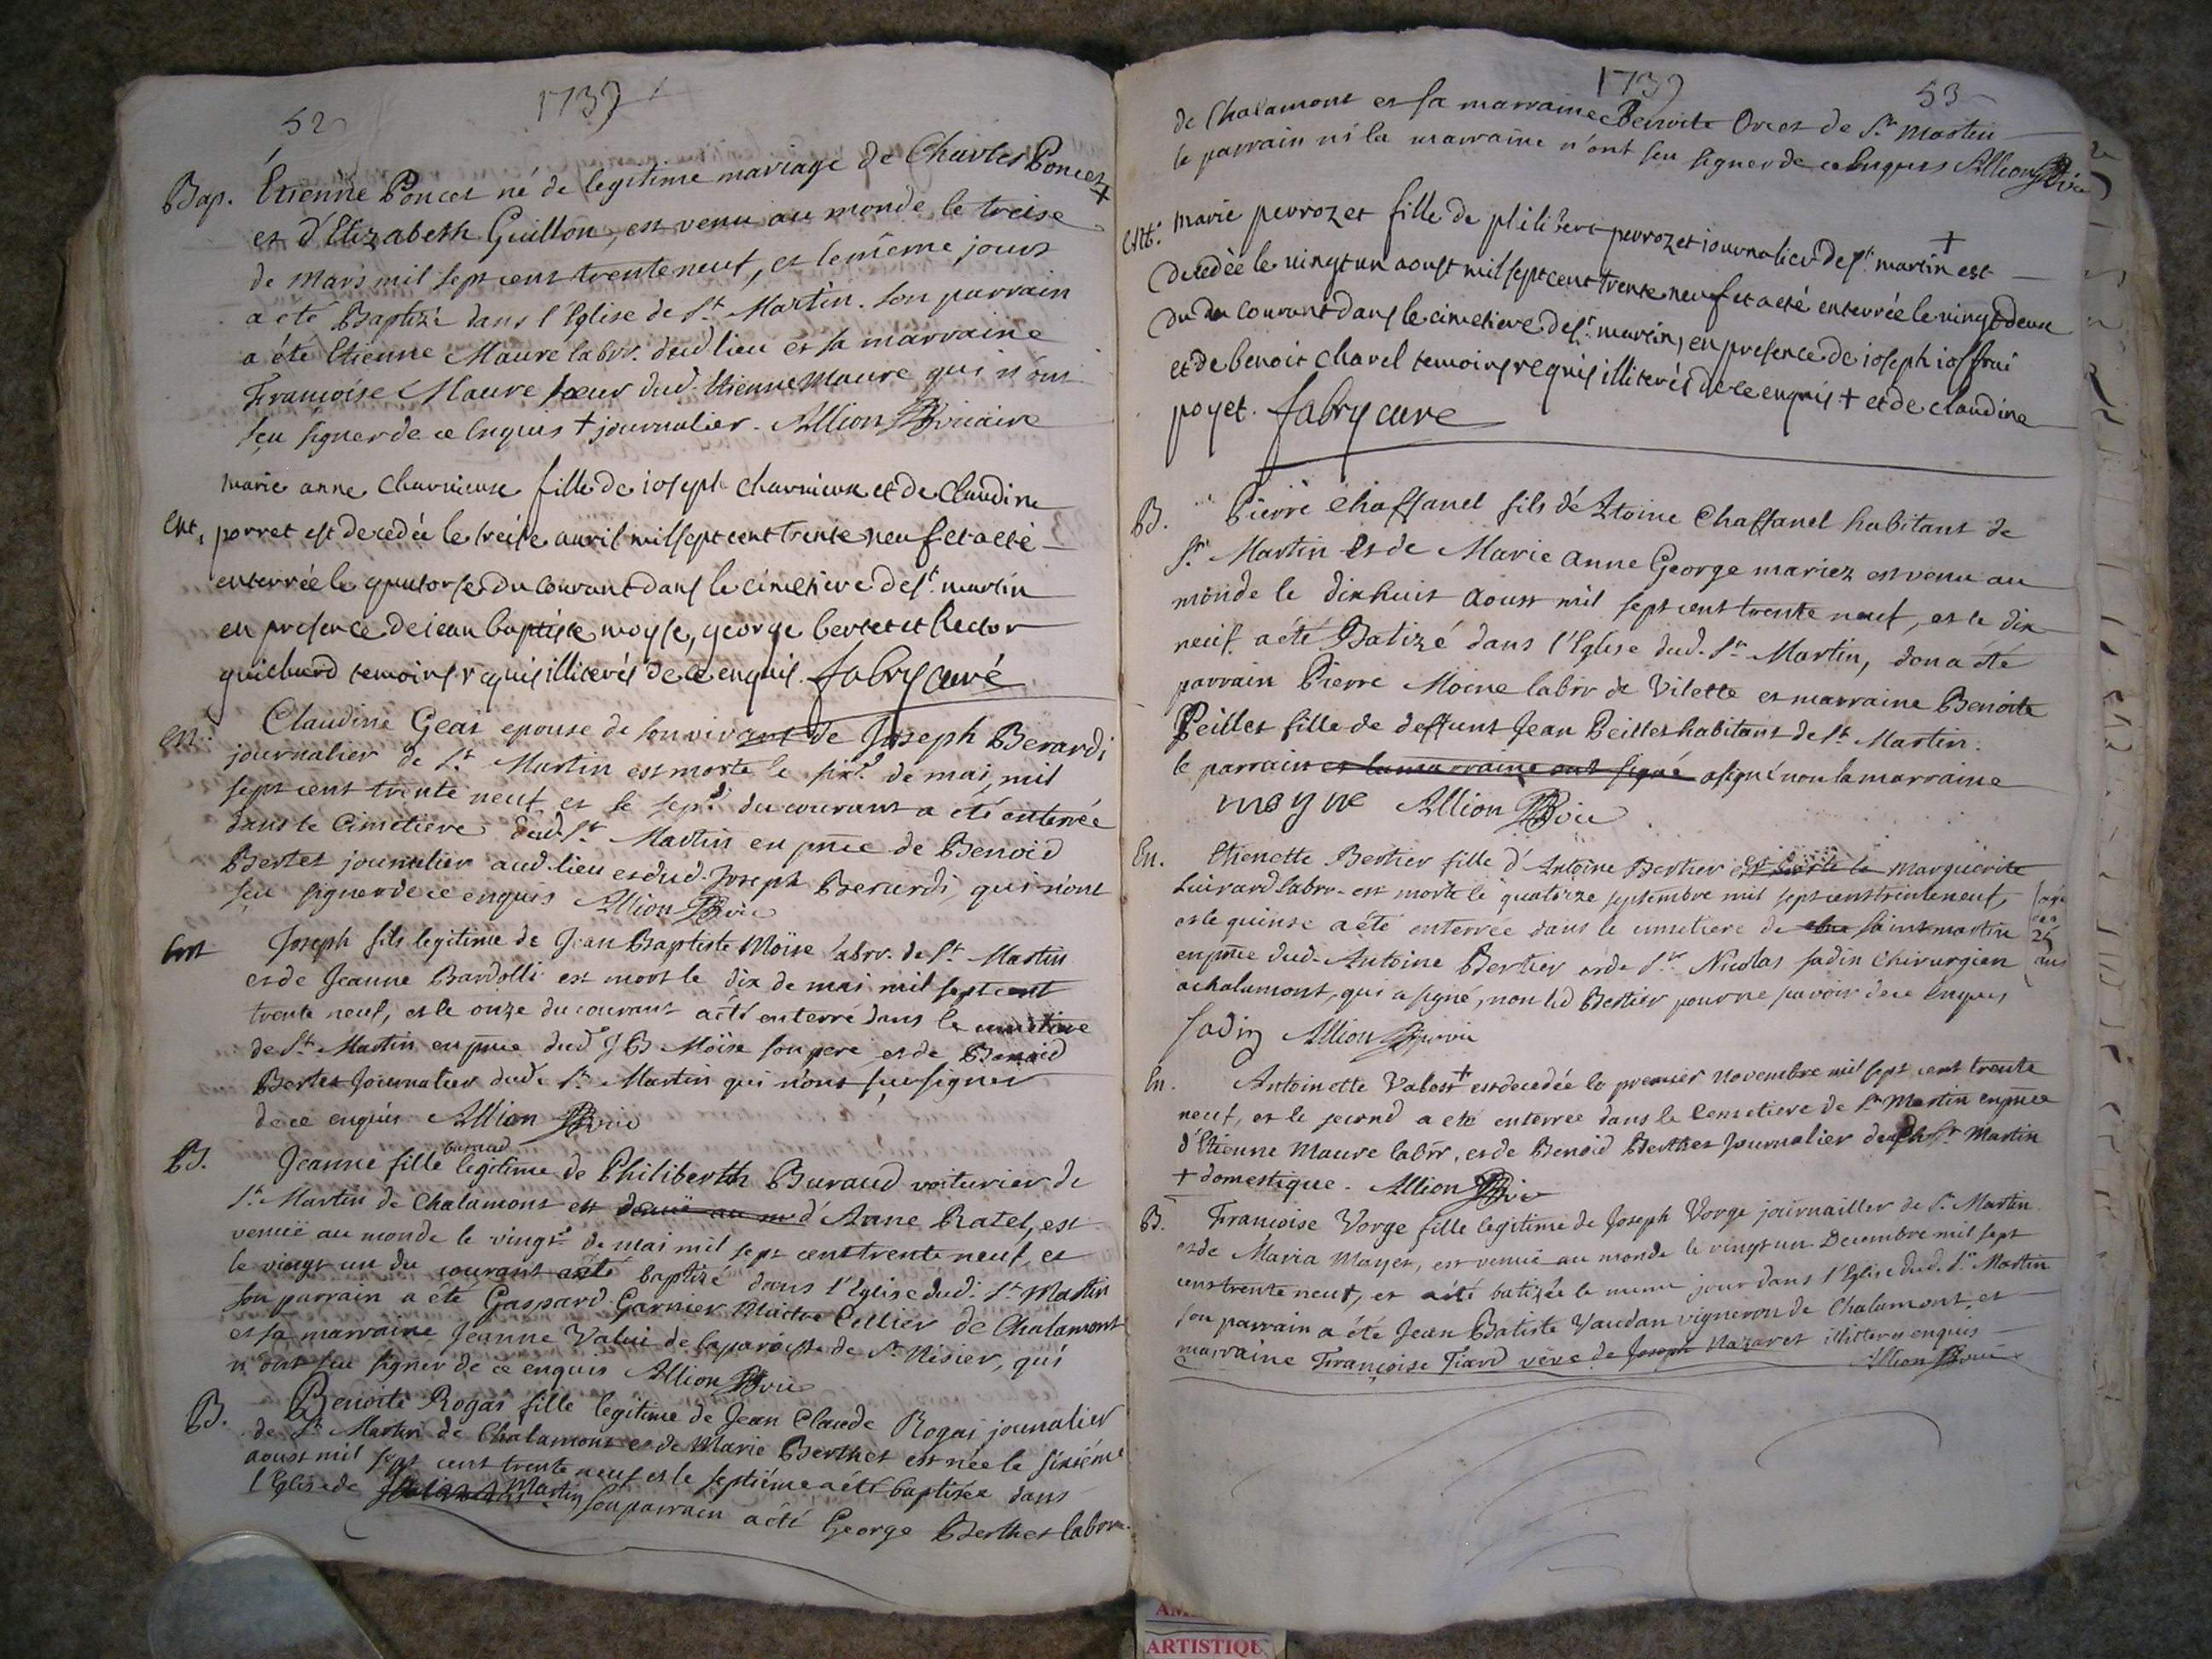 52
1739
Bap. Etienne Poncet né de legitime mariage de Charles Poncet +
et d'Elizabeth Guillon, est venu au monde le treise
de Mars mil sept cent trente neuf, et le même jours
a été Baptizé dans l'Eglise de St. Martin. son parrain
a été Etienne Maure labrr. dud lieu et sa marraine
Francoise Maure sœur dud. Etienne Maure qui n'ont
sçu signer de ce Enquis + journalier. Allion Vicaire
marie anne Charvieux fille de ioseph charvieux et de Claudine
Ent. porret est decedée le treise auril mil sept cent trente neuf et a eté
enterrée le quatorse du courant dans le cimetiere de st. martin
en presence de iean baptiste moyse, george bertet et hector
guichard temoins requis illiterés de ce enquis. fabry curé
Ent. Claudine Geai epouse de son vivant de Joseph Berardi
journalier de St. Martin est morte le sixe. de mai, mil
sept cent trente neuf et le sepe. du courant a été enterrée
dans le Cimetiere dud. St. Martin en pnce de Benoid
Bertet journalier aud. lieu et dud. Joseph Berardi, qui n'ont
sçu signer de ce enquis Allion Vic
Ent Joseph fils legitime de Jean Baptiste Moïse labrr. de St. Martin
et de Jeanne Bardolli est mort le dix de mai mil sept cent
trente neuf, et le onze du courant a été enterré dans le cimetiere
de St. Martin en pnce dud JB Moïse son pere et de Benoid
Bertet Journalier dud. St. Martin qui n'ont sçu signer
de ce enquis Allion Vic
buraud
B. Jeanne fille legitime de Philiberth Buraud voiturier de
St. Martin de Chalamont et d'Anne Ratel, est
venuë au monde le vingt de mai mil sept cent trente neuf, et
le vingt un du courant a été baptizé dans l'Eglise dud. St. Martin
son parrain a été Gaspard Garnier Maitre Cellier de Chalamont
et sa marraine Jeanne Valui de la paroisse de St. Nisier, qui
n'ont sçu signer de ce enquis Allion Vic
B. Benoite Rogai fille legitime de Jean Claude Rogai journalier
de St. Martin de Chalamont et de Marie Berthet est née le sixiéme
aoust mil sept cent trente neuf et le septiéme a été baptisée dans
l'Eglise de Martin son parrain a été George Berthet labrr.
1739
53
de Chalamont et sa marraine Benoite Orcet de St. Martin
le parrain ni la marraine n'ont sçu signer de ce Enquis Allion Vic
Ent. Marie perrozet fille de philibert perrozet iournalier de st. martin + est
decedée le vingt un aoust mil sept cent trente neuf et a eté enterrée le vingt deux
du courant dans le cimetiere de st. martin, en presence de ioseph ioffrai
et de benoit chavel temoins requis illiterés de ce enquis + et de claudine
poyet. fabry cure
B. Pierre Chaffanel fils d'Atoine Chaffanel habitant de
St. Martin et de Marie Anne George mariez est venu au
monde le dixhuit Aoust mil sept cent trente neuf, et le dix
neuf a été Batizé dans l'Eglise dud. St. Martin, don a été
parrain Pierre Moine labrr de Vilette et marraine Benoite
Peillet fille de deffunt Jean Peillet habitant de St. Martin.
le parrain et la marraine ont signé a signé non la marraine
moyne Allion Vic
En. Etienette Bertier fille d'Antoine Bertier Marguerite
Guirard labrr. est morte le quatorze septembre mil sept cent trente neuf,
et le quinse a été enterrée dans le cimetiere de saint martin
agé
26
ans
en pnce dud. Antoine Bertier et de Sr. Nicolas Jadin Chirurgien
a chalamont, qui a signé, non led Bertier pour ne savoir de ce Enquis
Jadin Allion
En. Antoinette Valost + est decedée le premier Novembre mil sept cent trente
neuf, et le second a eté enterrée dans le Cemetiere de St. Martin en pnce
d'Etienne Maure labrr, et de Benoid Berthet Journalier dud St. Martin
+ domestique. Allion Vic
B. Francoise Vorge fille legitime de Joseph Vorge journailler de St. Martin
et de Maria Mayet, est venuë au monde le vingt un Decembre mil sept
cent trente neuf, et a été batizée le meme jour dans l'Eglise dud. St. Martin
son parrain a été Jean Batiste Vaudan vigneron de Chalamont, et
marraine Françoise Tiard veve de Joseph Nazaret illiteres enquis
Allion Vic
ARTISTIQU